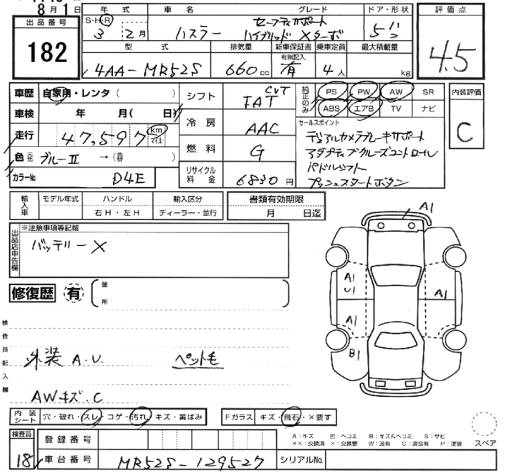 8月1日
出品番号
182
年式 車名 グレード ドア・形状
S・H・R 3年 2月 ハスラー セーフティサポート ハイブリッド Xターボ 5ドア
評価点
4.5
型式 排気量 新車保証書 乗車定員 最大積載量
4AA-MR52S 660cc 有無記入 有 4人 kg
車歴 自家用・レンタ( )
車検 年 月(日)
走行 47,597 km マイル
色 ブルーII →( )
カラーNo. D4E
シフト CVT FAT
冷房 AAC
燃料 G
リサイクル料金 6830円
純正のみ PS PW AW SR
ABS エアB TV ナビ
セールスポイント
デュアルカメラブレーキサポート
アダプティブクルーズコントロール
パドルシフト
プッシュスタートボタン
内装評価
C
輸入車 モデル年式 ハンドル 輸入区分 書類有効期限
右H・左H ディーラー・並行 月 日迄
出品店申告欄
※注意事項等記載
バッテリーX
修復歴 有 箇所
検査員記入欄
外装 A.U. ペット毛
AWキズ.C
A1
A1
U1
A1
A1
B1
内装シート 穴・破れ・スレ コゲ・汚れ キズ・黄ばみ Fガラス キズ・飛石・X要す
スペア
検査員 18
登録番号
車台番号 MR52S-129527 シリアルNo.